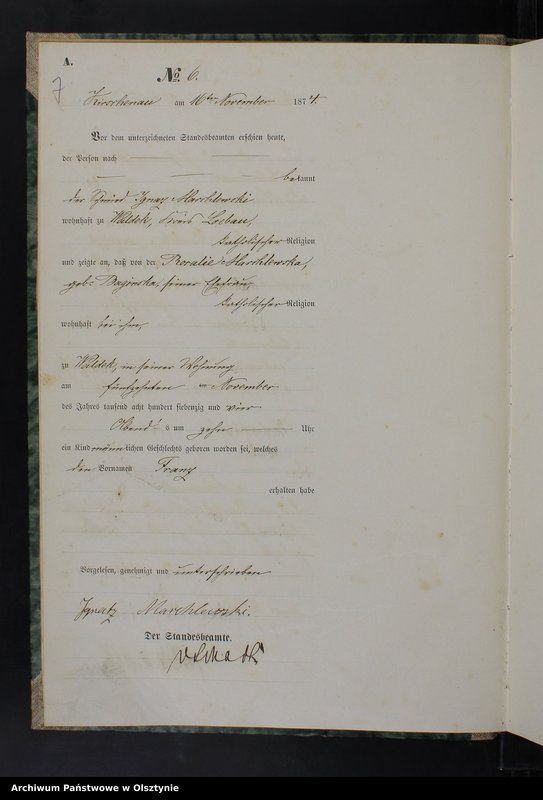 A.
7
No. 6.
Kirschenau am 16ten November 1874.
Vor dem unterzeichneten Standesbeamten erschien heute,
der Person nach
bekannt
der Ignaz Marchlewski
wohnhaft zu Waldek, Kreis Loebau,
katholischer Religion
und zeigte an, daß von der Rosalie Marchlewska,
geb: Baginska, seiner Ehefrau,
katholischer Religion
wohnhaft bei ihm,
zu Waldek, in seiner Wohnung
am fünfzehnten November
des Jahres tausend acht hundert siebenzig und vier
Abend's um zehn Uhr
ein Kind männlichen Geschlechts geboren worden sei, welches
den Vornamen Franz
erhalten habe
Vorgelesen, genehmigt und unterschrieben
Ignatz Marchlewski.
Der Standesbeamte.
Archiwum Państwowe w Olsztynie